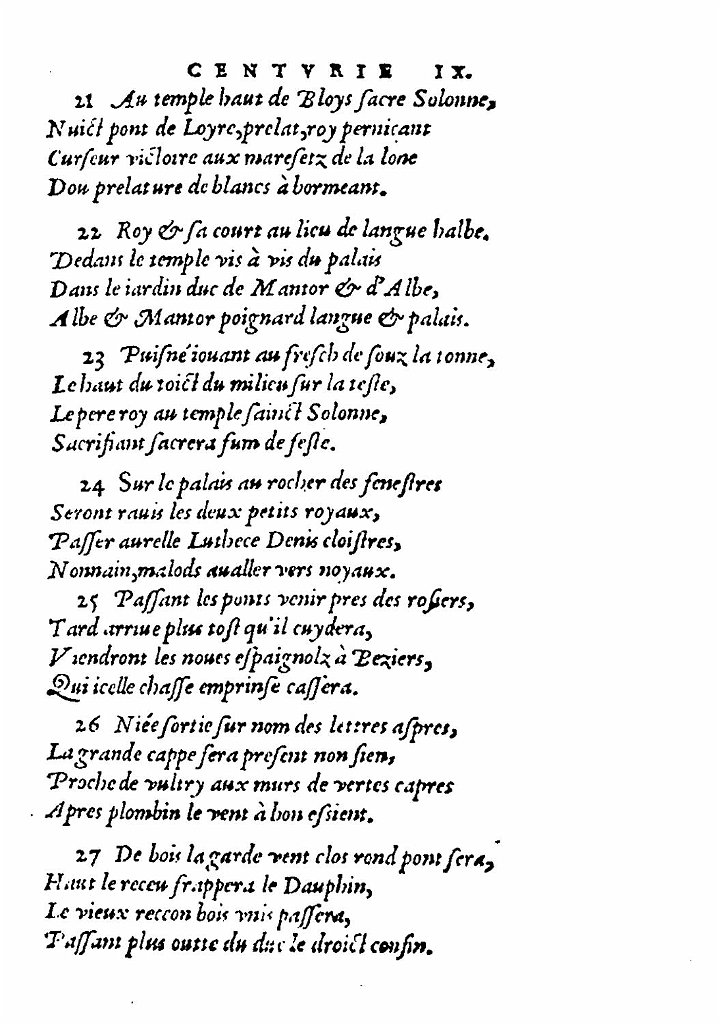 CENTVRIE IX.
21 Au temple haut de Bloys sacre Solonne,
Nuict pont de Loyre, prelat, roy perniçant
Curseur victoire aux maresetz de la lone
Dou prelature de blancs à bormeant.
22 Roy & sa court au lieu de langue halbe.
Dedans le temple vis à vis du palais
Dans le iardin duc de Mantor & d'Albe,
Albe & Mantor poignard langue & palais.
23 Puisné iouant au fresch de souz la tonne,
Le haut du toict du milieu sur la teste,
Le pere roy au temple sainct Solonne,
Sacrifiant sacrera fum de feste.
24 Sur le palais au rocher des fenestres
Seront rauis les deux petits royaux,
Passer aurelle Luthece Denis cloistres,
Nonnain, malods aualler vers noyaux.
25 Passant les ponts venir pres des rosiers,
Tard arriue plus tost qu'il cuydera,
Viendront les noues espaignolz à Beziers,
Qui icelle chasse emprinse cassera.
26 Niée sortie sur nom des lettres aspres,
La grande cappe sera present non sien,
Proche de vultry aux murs de vertes capres
Apres plombin le vent à bon essient.
27 De bois la garde vent clos rond pont sera,
Haut le receu frappera le Dauphin,
Le vieux teccon bois vnis passera,
Passant plus outte du duc le droict confin.